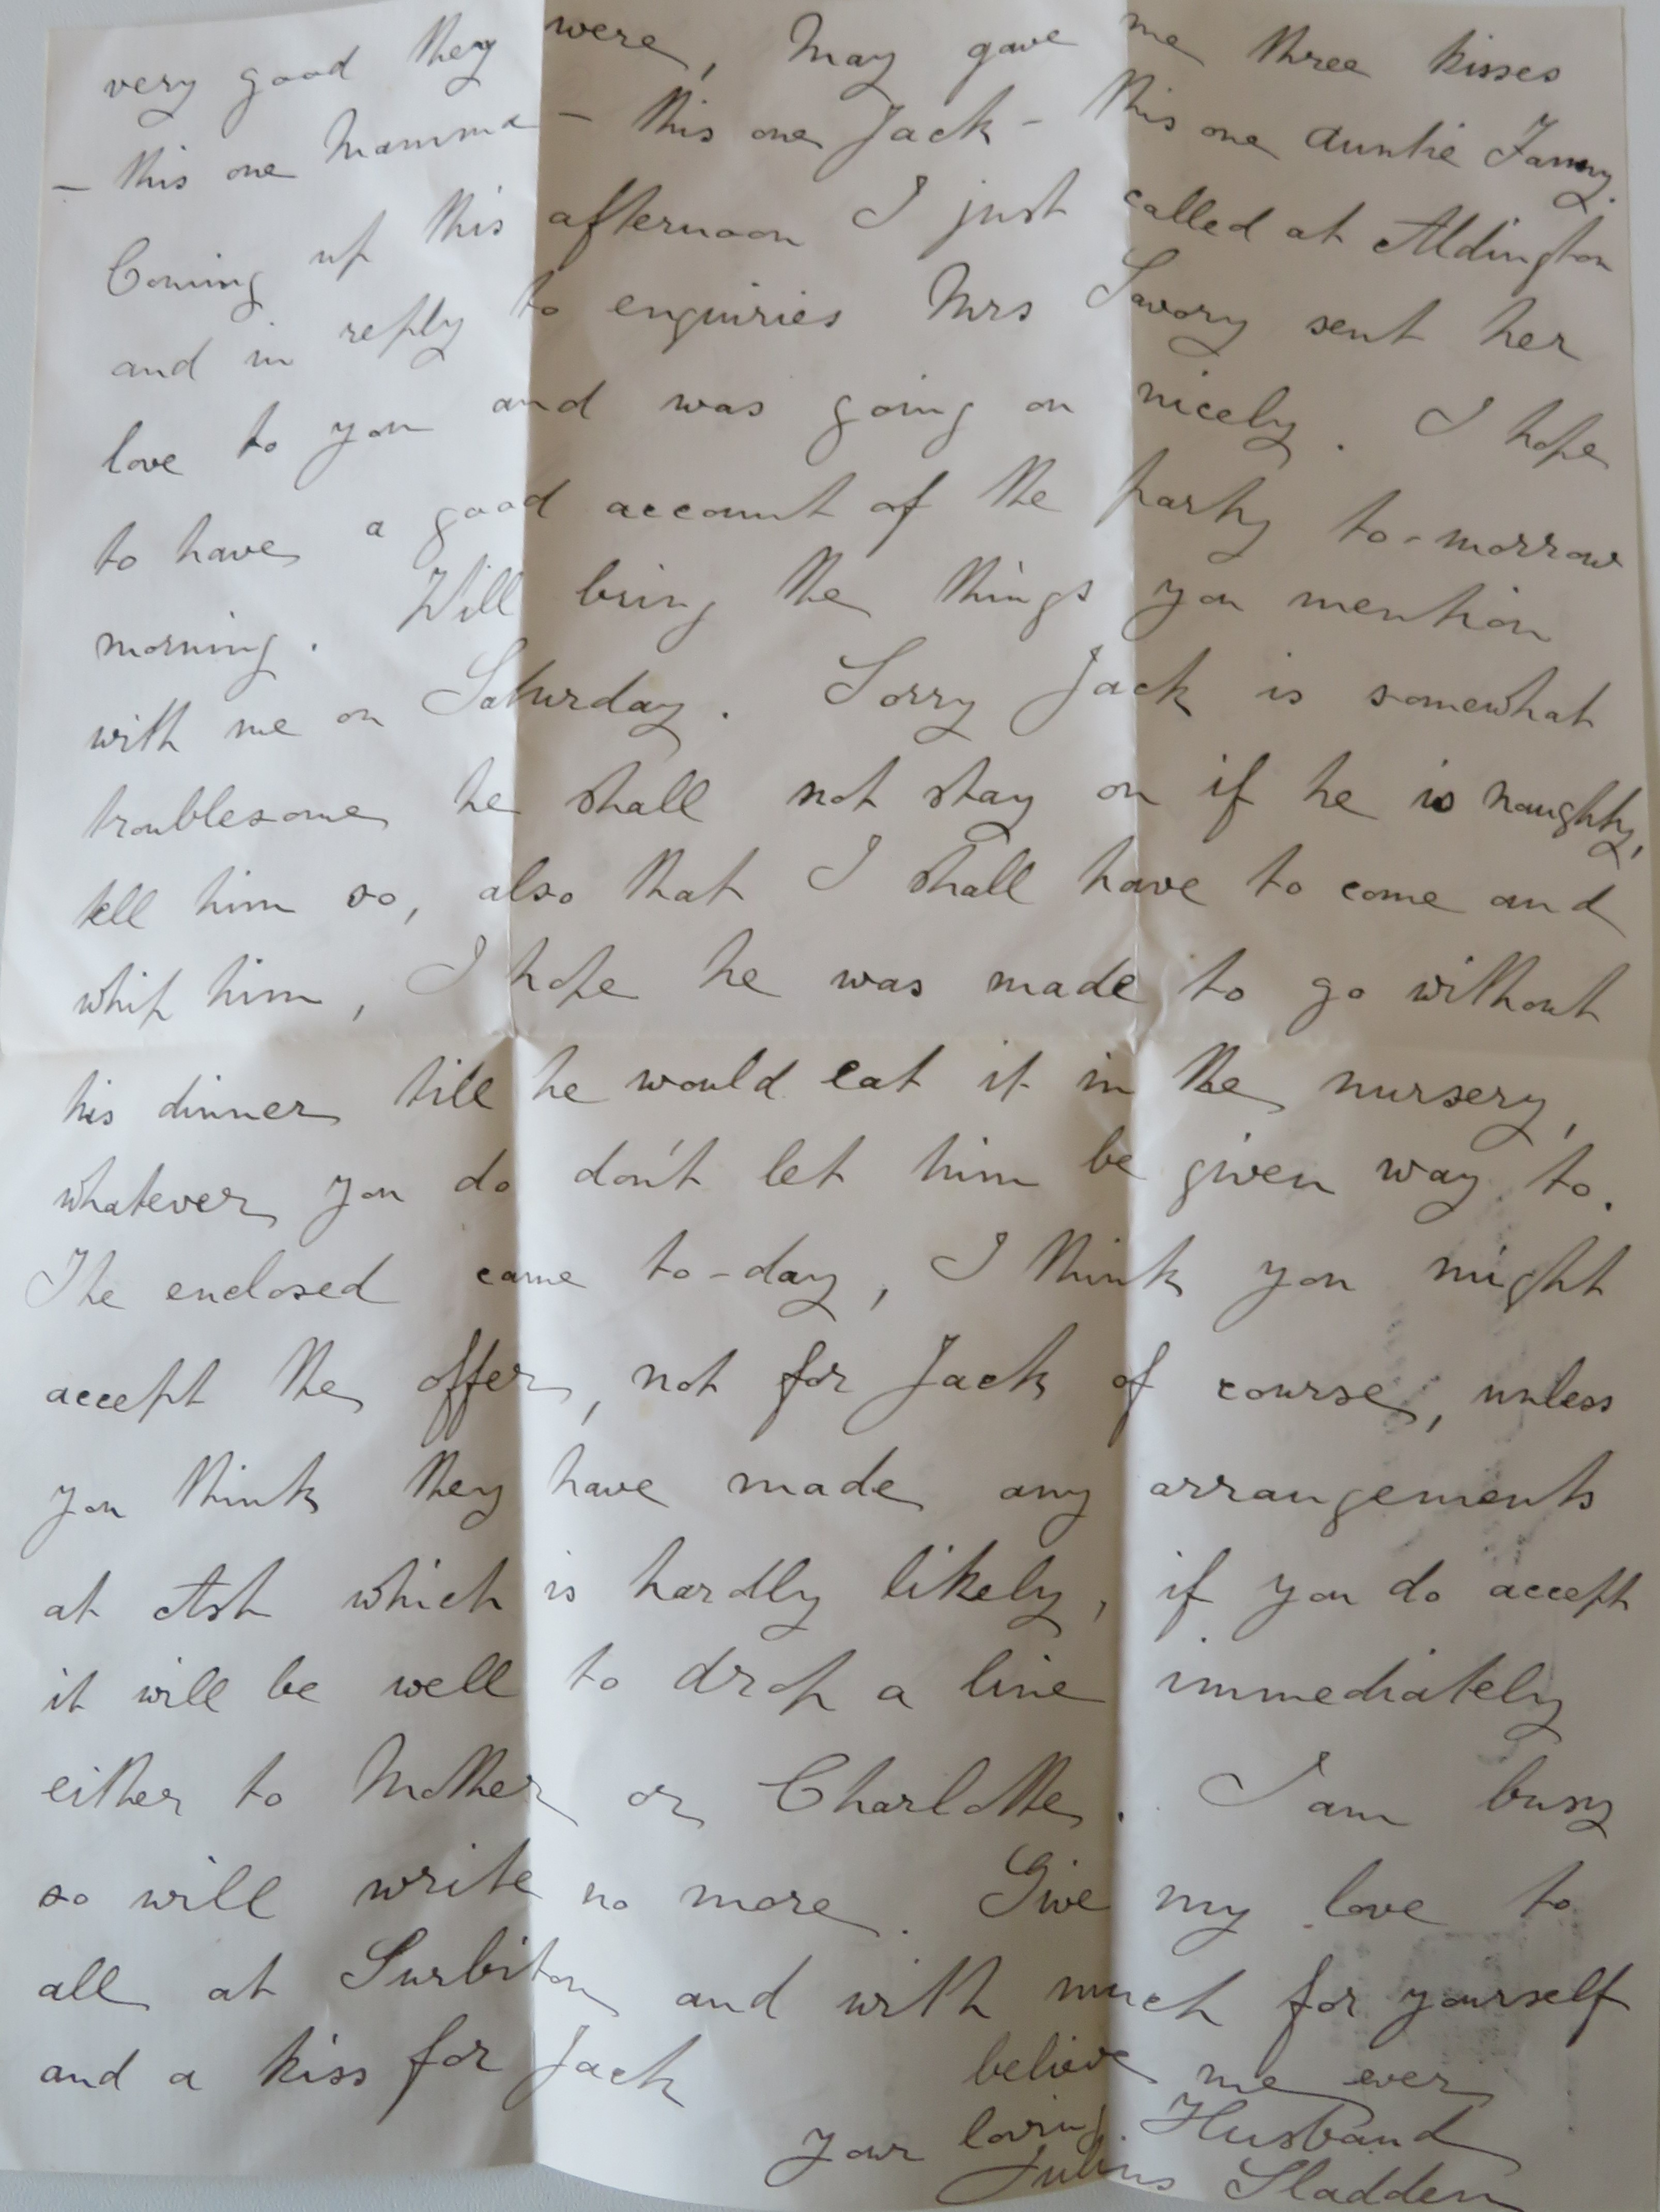 very good they were, May gave me three kisses
- this one Mamma - this one Jack - this one Auntie Fanny.
Coming up this afternoon I just called at Aldington
and in reply to enquiries Mrs Savory sent her
love to you and was going on nicely. I hope
to have a good account of the party to-morrow
morning. Will bring the things you mention
with me on Saturday. Sorry Jack is somewhat
troublesome he shall not stay on if he is naughty,
tell him so, also that I shall have to come and
whip him, I hope he was made to go without
his dinner till he would eat it in the nursery,
whatever you do don't let him be given way to.
The enclosed came to-day, I think you might
accept the offer, not for Jack of course, unless
you think they have made any arrangements
at Ash which is hardly likely, if you do accept
it will be well to drop a line immediately
either to Mother or Charlotte. I am busy
so will write no more. Give my love to
all at Surbiton and with much for yourself
and a kiss for Jack believe me ever
Your loving Husband
Julius Sladden